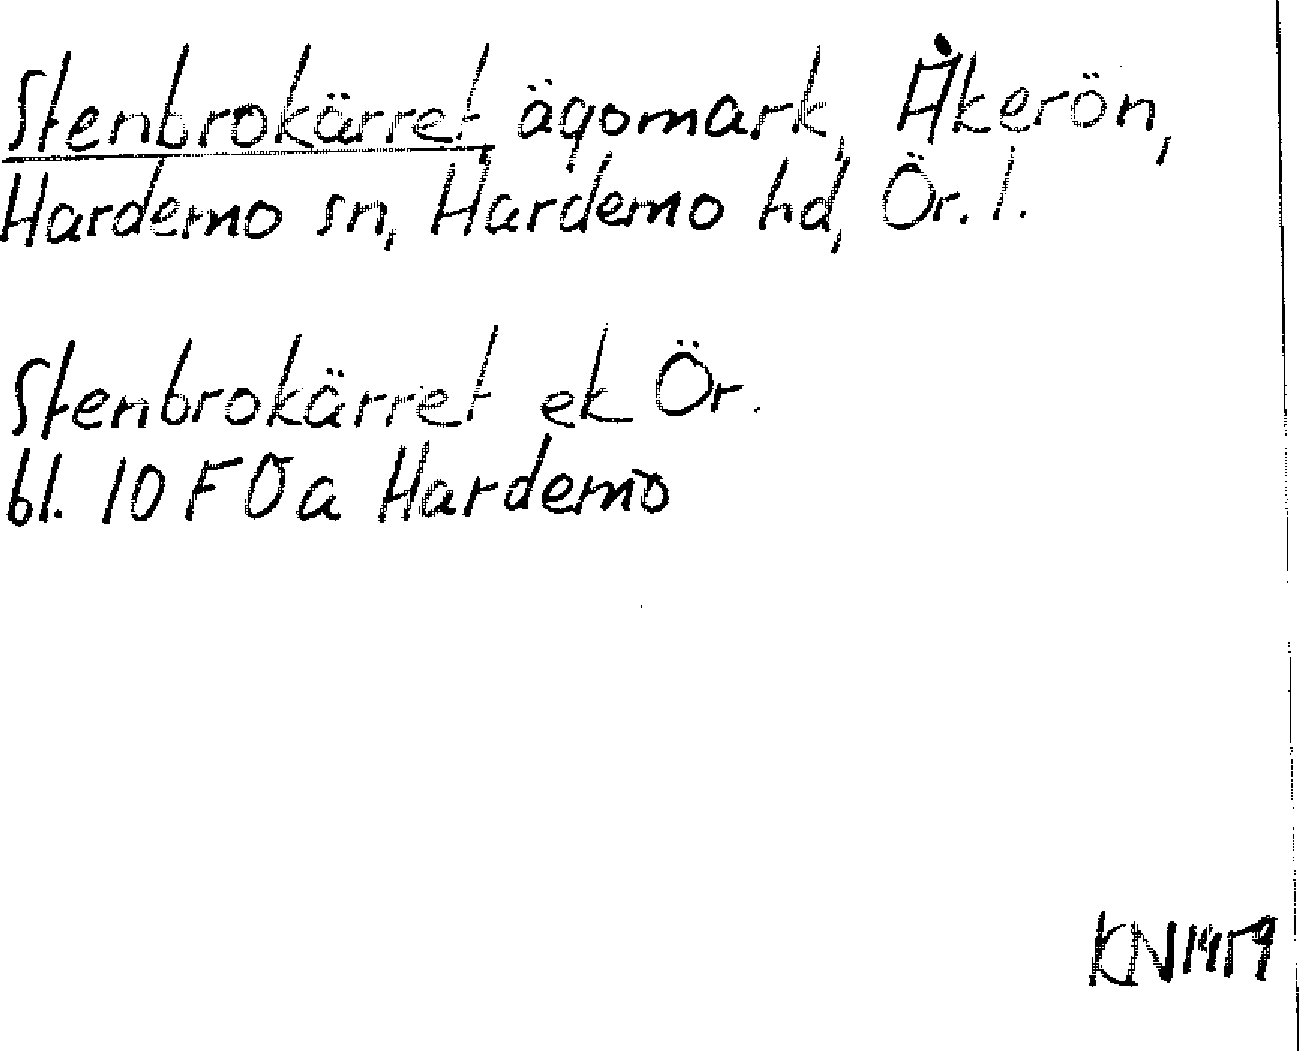 Stenbrokärret, ägomark, Åkerön,
Hardemo sn, Hardemo hd, Ör. l.
Stenbrokärret ek Ör.
bl. 10 F 0 a Hardemo
KN 1959